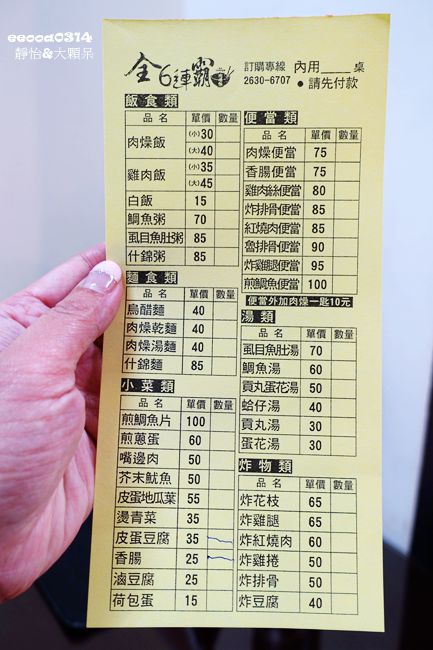 eeooa0314
靜怡&大顆呆
全6連霸
訂購專線
2630-6707
內用____桌
●請先付款
飯食類
品名 單價 數量
肉燥飯 (小)30
(大)40
雞肉飯 (小)35
(大)45
白飯 15
鯛魚粥 70
虱目魚肚粥 85
什錦粥 85
麵食類
品名 單價 數量
烏醋麵 40
肉燥乾麵 40
肉燥湯麵 40
什錦麵 85
小菜類
品名 單價 數量
煎鯛魚片 100
煎蔥蛋 60
嘴邊肉 50
芥末魷魚 50
皮蛋地瓜葉 55
燙青菜 35
皮蛋豆腐 35
香腸 25
滷豆腐 25
荷包蛋 15
便當類
品名 單價 數量
肉燥便當 75
香腸便當 75
雞肉絲便當 80
炸排骨便當 85
紅燒肉便當 85
魯排骨便當 90
炸雞腿便當 95
煎鯛魚便當 100
便當外加肉燥一匙10元
湯類
品名 單價 數量
虱目魚肚湯 70
鯛魚湯 60
貢丸蛋花湯 50
蛤仔湯 40
貢丸湯 30
蛋花湯 30
炸物類
品名 單價 數量
炸花枝 65
炸雞腿 65
炸紅燒肉 60
炸雞捲 50
炸排骨 50
炸豆腐 40